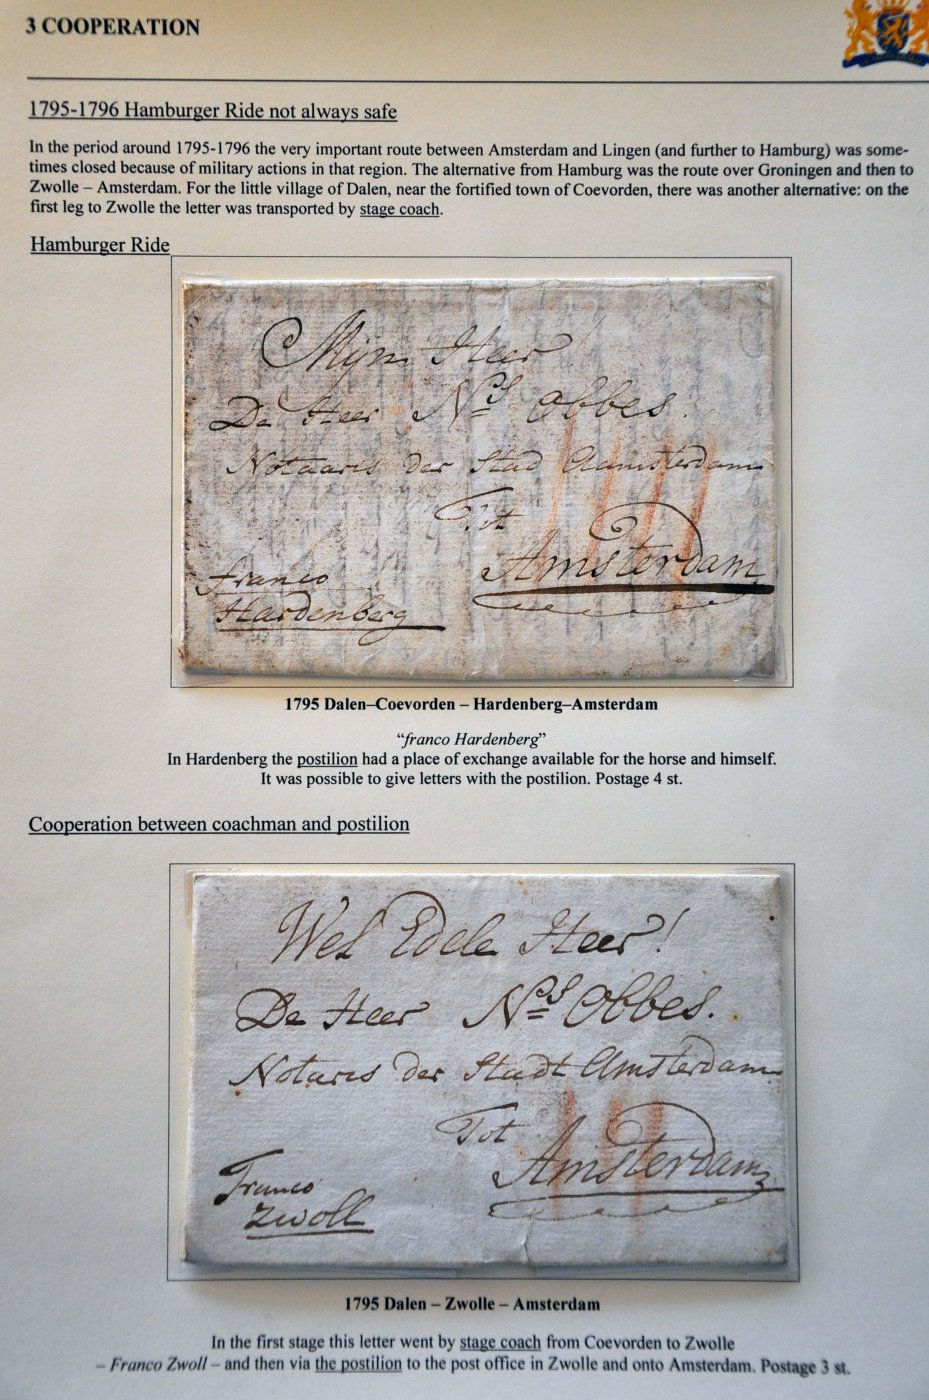 3 COOPERATION
1795-1796 Hamburger Ride not always safe
In the period around 1795-1796 the very important route between Amsterdam and Lingen (and further to Hamburg) was some-
times closed because of military actions in that region. The alternative from Hamburg was the route over Groningen and then to
Zwolle – Amsterdam. For the little village of Dalen, near the fortified town of Coevorden, there was another alternative: on the
first leg to Zwolle the letter was transported by stage coach.
Hamburger Ride
Mijn Heer!
De Heer Ns Obbes.
Notaaris der Stad Aamsterdam
Tot
Amsterdam
franco
Hardenberg
1795 Dalen–Coevorden – Hardenberg–Amsterdam
“franco Hardenberg”
In Hardenberg the postilion had a place of exchange available for the horse and himself.
It was possible to give letters with the postilion. Postage 4 st.
Cooperation between coachman and postilion
Wel Edele Heer!
De Heer Ns Obbes.
Notaris der Stadt Amsterdam
Tot
Amsterdam
Franco
Zwoll
1795 Dalen – Zwolle – Amsterdam
In the first stage this letter went by stage coach from Coevorden to Zwolle
– Franco Zwoll – and then via the postilion to the post office in Zwolle and onto Amsterdam. Postage 3 st.